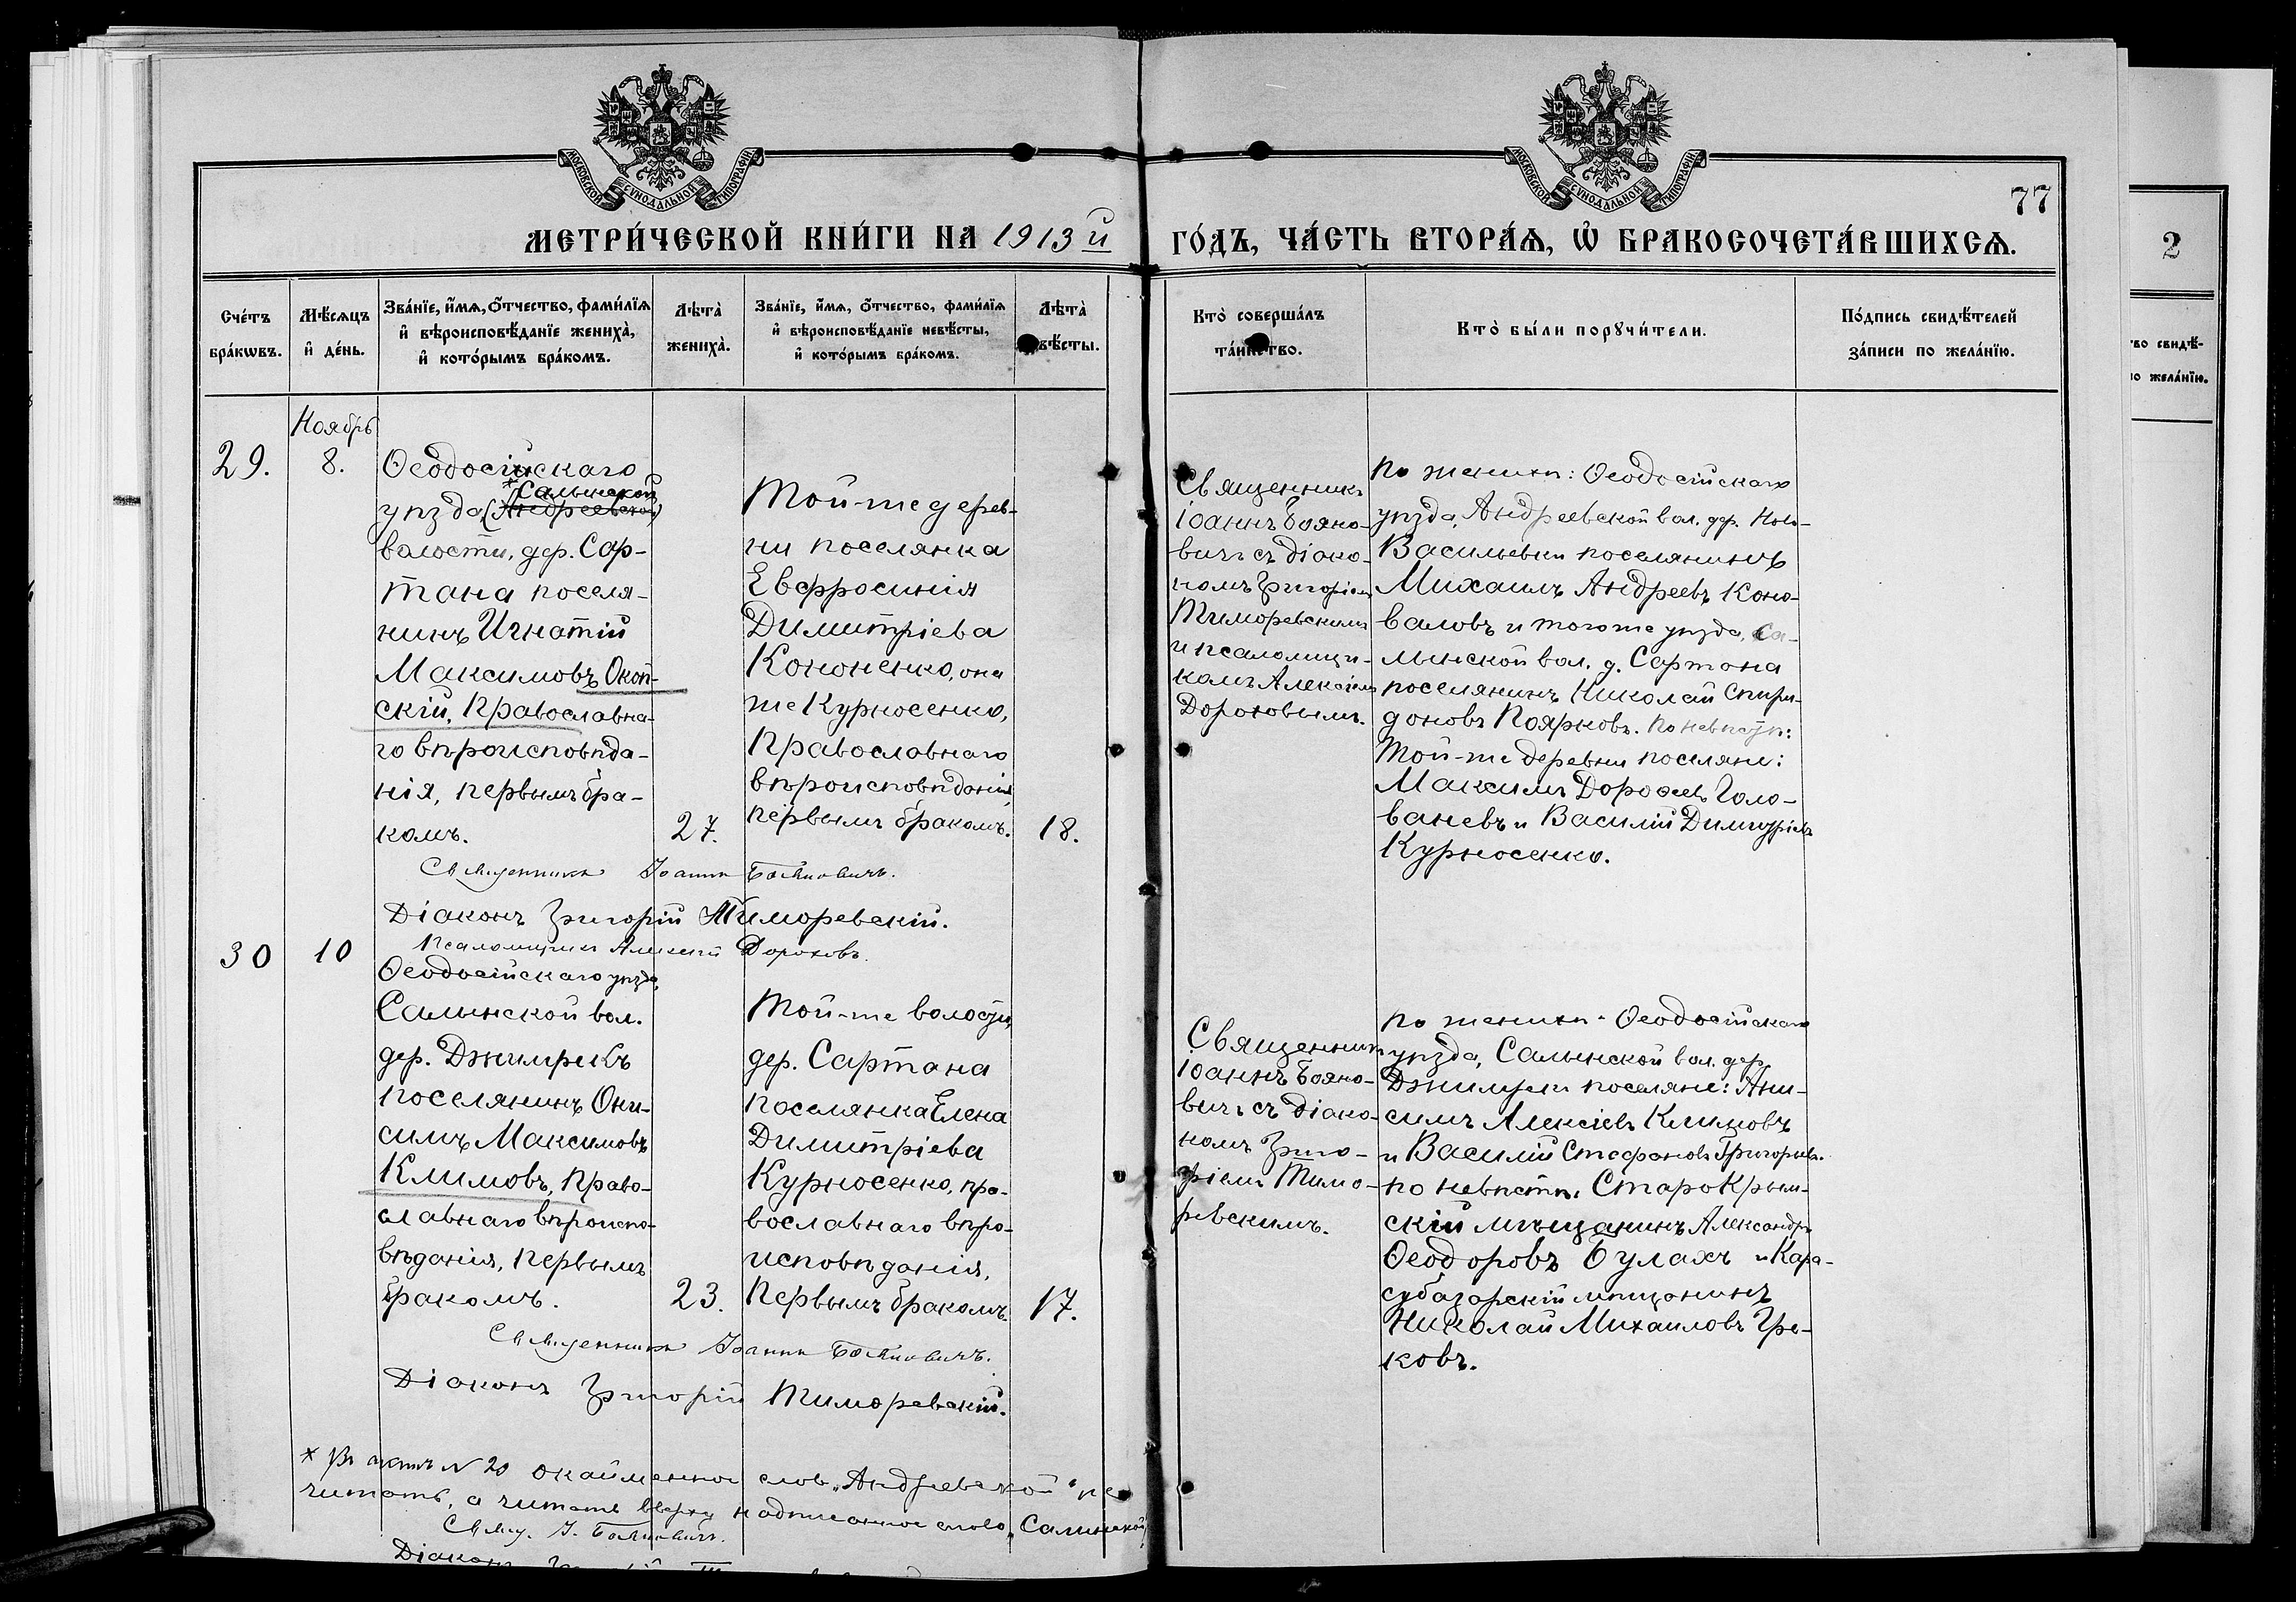 МОСКОВСКОЙ СУНОДАЛЬНОЙ ТИПОГРАФІИ
МОСКОВСКОЙ СУНОДАЛЬНОЙ ТИПОГРАФІИ
77
МЕТРИ́ЧЕСКОЙ КНИ́ГИ НА 1913 й ГО́ДЪ, ЧА́СТЬ ВТОРА́Ѧ, Ѡ҆ БРАКОСОЧЕТА́ВШИХСѦ.
2
Сче́тъ бра́кѡвъ.
Мѣ́сѧцъ и҆ де́нь.
Зва́нїе, и҆́мѧ, ѻ҆́тчество, фами́лїѧ
и҆ вѣроисповѣ́данїе жениха̀,
и҆ кото́рымъ бра́комъ.
Лѣта̀
жениха̀.
Зва́нїе, и҆́мѧ, ѻ҆́тчество, фами́лїѧ
и҆ вѣроисповѣ́данїе невѣ́сты,
и҆ кото́рымъ бра́комъ.
Лѣта̀
вѣ́сты.
Кто̀ соверша́лъ
та́инство.
Кто̀ бы́ли порꙋчи́тели.
По́дпись свидѣ́телей
за́писи по жела́нїю.
тво свидѣ́-
по жела́нїю.
Ноябрь
29.
8.
Ѳеодосійскаго
* Салынской
уѣзда, (Андреевской)
волости, дер. Сар-
тана поселя-
нинъ Игнатій
Максимовъ Окоп-
скій, Православна-
го вѣроисповѣда-
нія, первымъ бра-
комъ.
27.
Той-же дерев-
ни поселянка
Евфросинія
Димитріева
Кононенко, она
же Курносенко,
Православнаго
вѣроисповѣданія,
первымъ бракомъ.
18.
Священникъ
Іоаннъ Бояно-
вичъ съ діако-
номъ Григоріемъ
Тиморевскимъ
и псаломщи-
комъ Алексіемъ
Дороховымъ.
По женихѣ: Ѳеодосійскаго
уѣзда, Андреевской вол. дер. Ново-
Васильевки поселянинъ
Михаилъ Андреевъ Коно-
валовъ и того же уѣзда, Са-
лынской вол. д. Сартана
поселянинъ Николай Спири-
доновъ Поярковъ. По невѣстѣ:
Той-же деревни поселяне:
Максимъ Дороѳеевъ Голо-
ваневъ и Василій Димитріевъ
Курносенко.
Священникъ Іоаннъ Бояновичъ.
Діаконъ Григорій Тиморевскій.
Псаломщикъ Алексій Дороховъ.
30
10
Ѳеодосійскаго уѣзда,
Салынской вол.
дер. Джимрекъ
поселянинъ Они-
симъ Максимовъ
Климовъ, Право-
славнаго вѣроиспо-
вѣданія, первымъ
бракомъ.
23.
Той-же волости,
дер. Сартана
поселянка Елена
Димитріева
Курносенко, пра-
вославнаго вѣро-
исповѣданія,
Первымъ бракомъ.
17.
Священникъ
Іоаннъ Бояно-
вичъ съ діако-
номъ Григо-
ріемъ Тимо-
ревскимъ.
По женихѣ: Ѳеодосійскаго
уѣзда, Салынской вол. дер.
поселяне: Ани-
симъ Алексіевъ Климовъ
и Василій Стефановъ Григорьевъ.
по невѣстѣ: СтароКрым-
скій мѣщанинъ Александръ
Ѳеодоровъ Булахъ и Кара-
субазарскій мѣщанинъ
Николай Михаиловъ Гре-
ковъ.
Священникъ Іоаннъ Бояновичъ.
Діаконъ Григорій Тиморевскій.
* Въ актѣ № 29 окаймленное слово „Андреевской“ не
читать, а читать вверху надписанное слово „Салынской“
Свящ. І. Бояновичъ.
Діаконъ